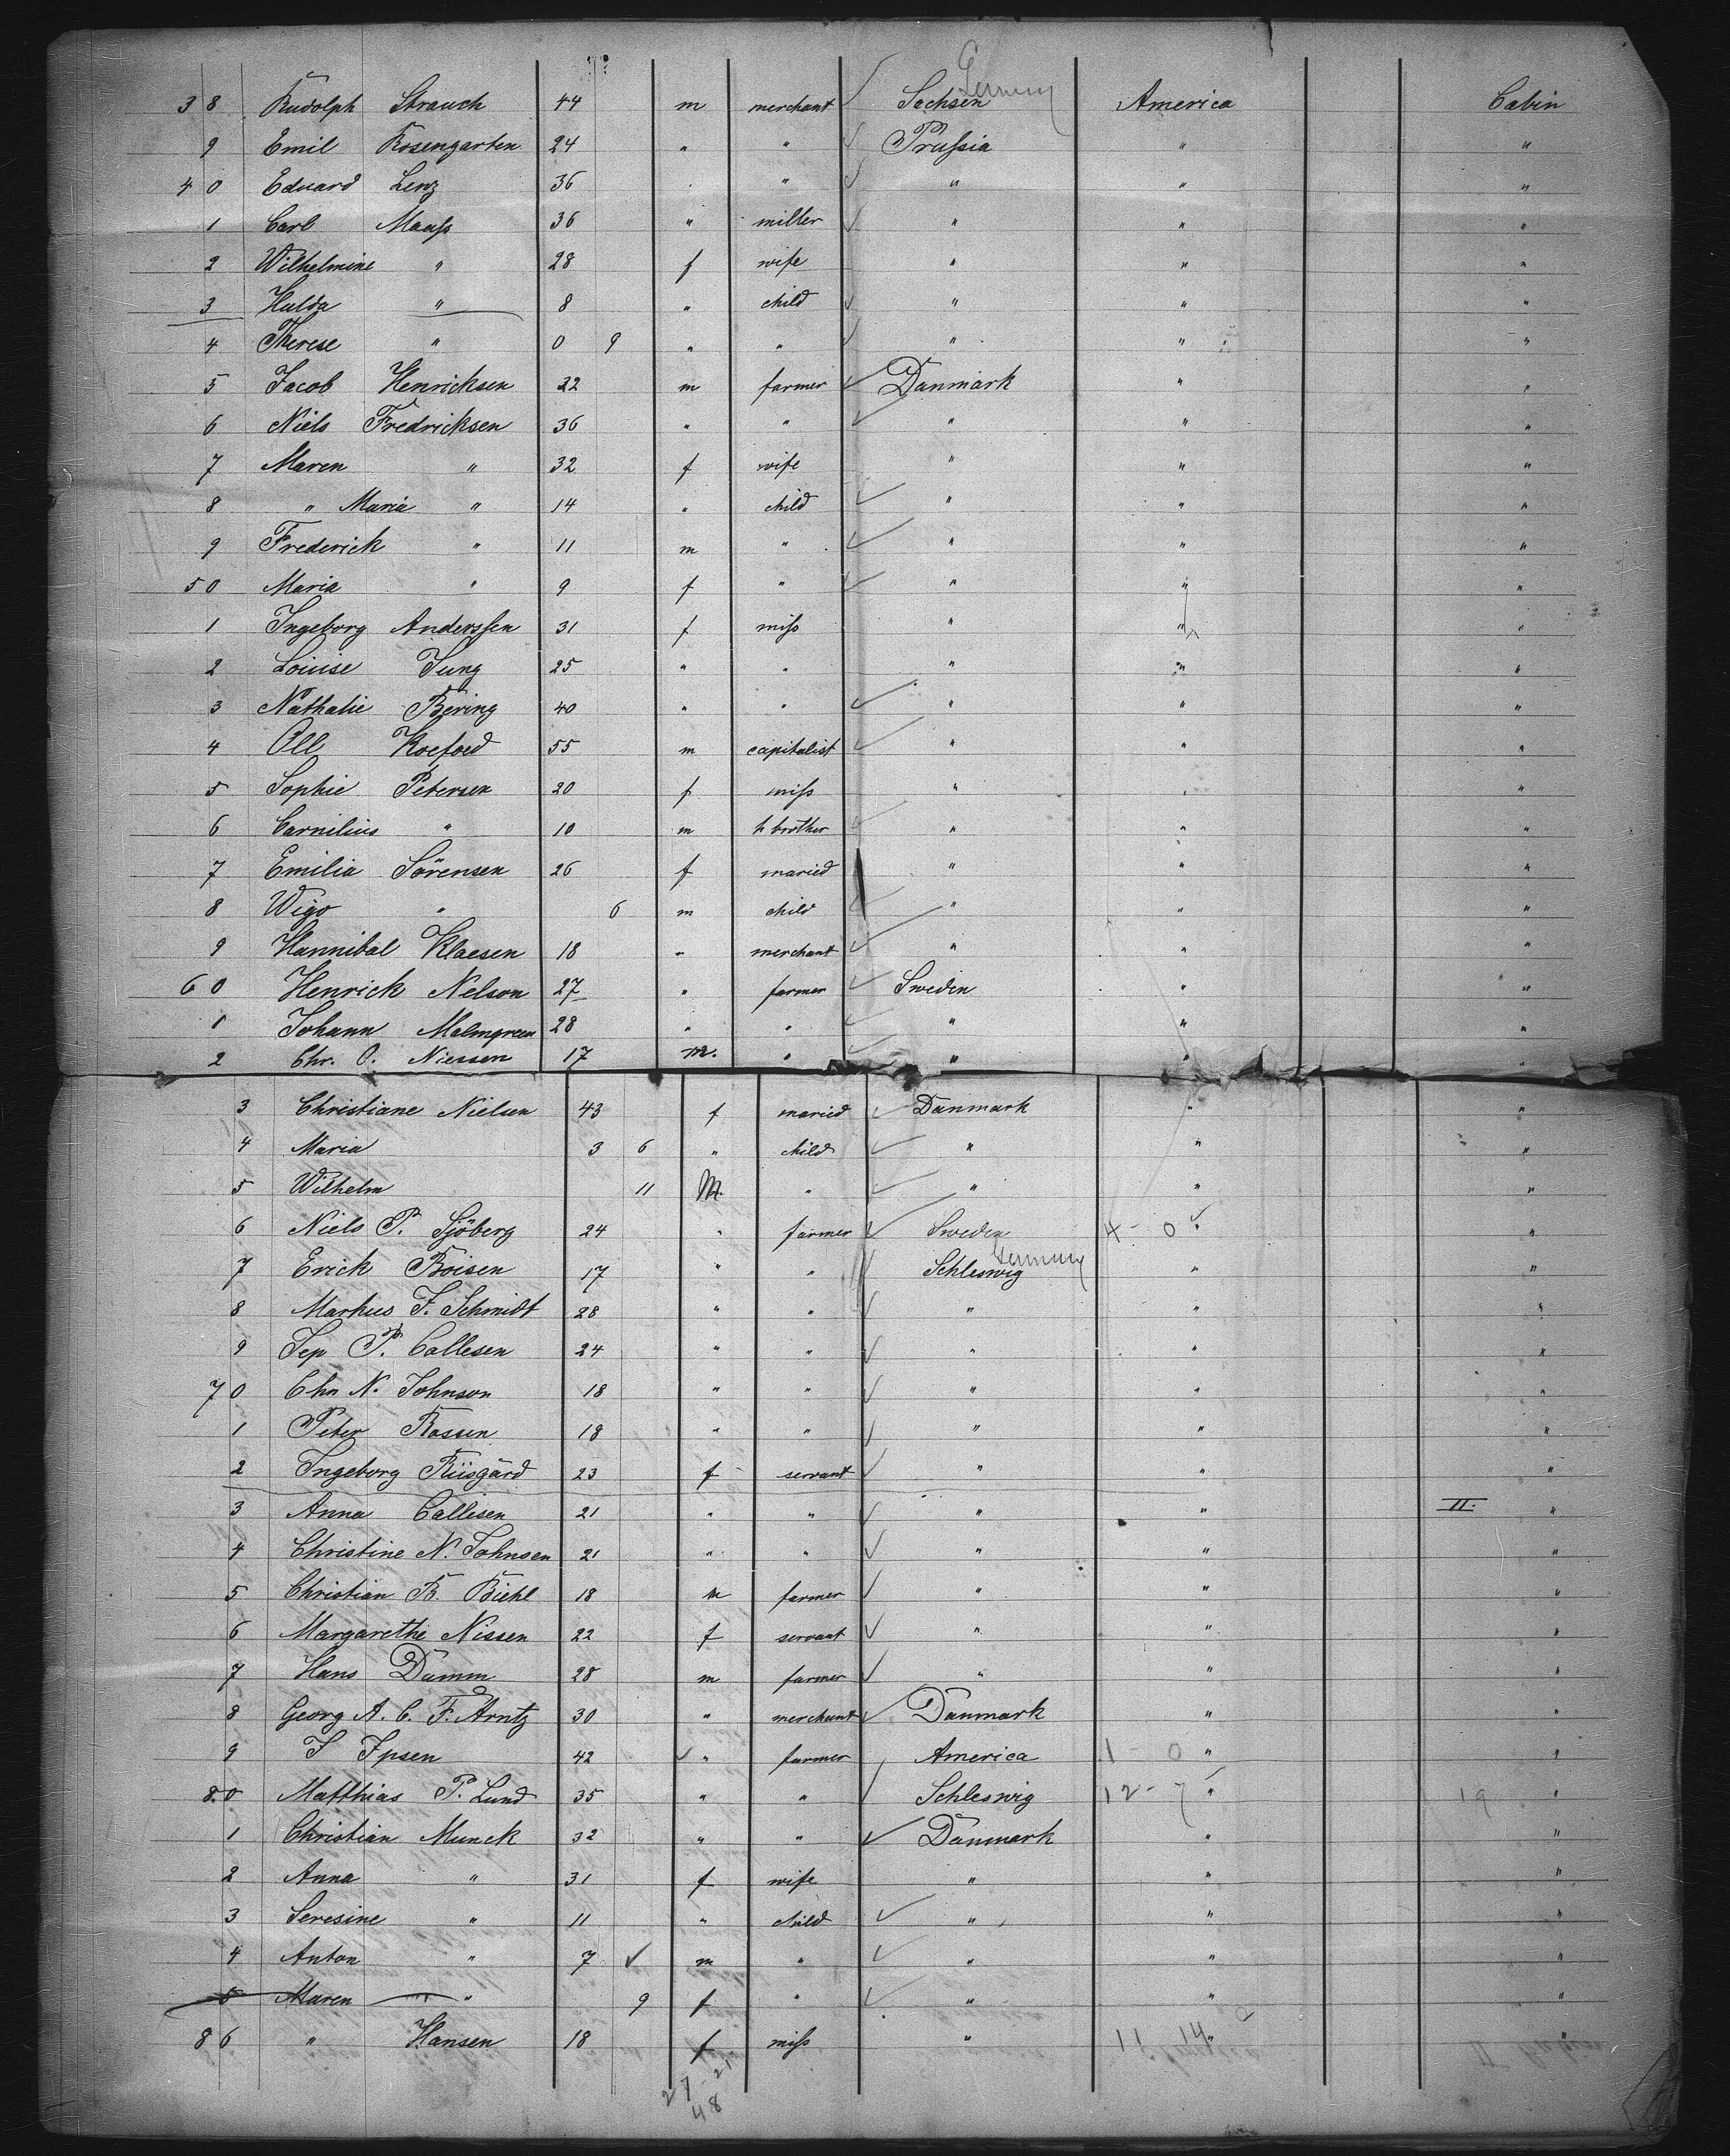 Germany
38 Rudolph Strauch 44 m merchant Sachsen America Cabin
9 Emil Rosengarten 24 " " Prussia " "
40 Eduard Lenz 36 " " " "
1 Carl Mauss 36 " miller " " "
2 Wilhelmine " 28 f wife " " "
3 Hulda " 8 " child " " "
4 Therese " 0 9 " " " " "
5 Jacob Henricksen 22 m farmer Danmark " "
6 Niels Fredricksen 36 " " " " "
7 Maren " 32 f wife " " "
8 " Maria " 14 " child " " "
9 Frederick " 11 m " " " "
50 Maria " 9 f " " " "
1 Ingeborg Anderssen 31 f miss " " "
2 Louise Jung 25 " " " " "
3 Nathalie Bering 40 " " " " "
4 Oll Koefoed 55 m capitalist " " "
5 Sophie Petersen 20 f miss " " "
6 Carnilius " 10 m h brother " " "
7 Emilia Sörensen 26 f maried " " "
8 Wigo " 6 m child " " "
9 Hannibal Klaesen 18 " merchant " " "
60 Henrick Nelson 27 " farmer Sweden " "
1 Johann Malmgreen 28 " " " " "
2 Chr. O. Niessen 17 m. " " " "
3 Christiane Nielsen 43 f maried Danmark " "
4 Maria 3 6 " child " " "
5 Wilhelm 11 M. " " " "
6 Niels P. Sjöberg 24 " farmer Sweden 4-0 " "
Germany
7 Erick Boisen 17 " " Schleswig " "
8 Markus F. Schmidt 28 " " " " "
9 Jep P. Callesen 24 " " " " "
70 Chr N. Johnson 18 " " " " "
1 Peter Rossen 18 " " " " "
2 Ingeborg Riisgård 23 f servant " " "
3 Anna Callesen 21 " " " " II. "
4 Christine N. Johnsen 21 " " " " "
5 Christian B. Biehl 18 m farmer " " "
6 Margarethe Nissen 22 f servant " " "
7 Hans Damm 28 m farmer " " "
8 Georg A. C. F. Arntz 30 " merchant Danmark " "
9 J Ipsen 42 " farmer America 1-0 " "
80 Matthias P. Lund 35 " " Schleswig 12-7 " 19 "
1 Christian Munck 32 " " Danmark " "
2 Anna " 31 f wife " " "
3 Seresine " 11 " child " " "
4 Anton " 7 m " " " "
5 Maren " 9 f " " " "
86 " Hansen 18 f miss " 11 14 " "
27-21
48